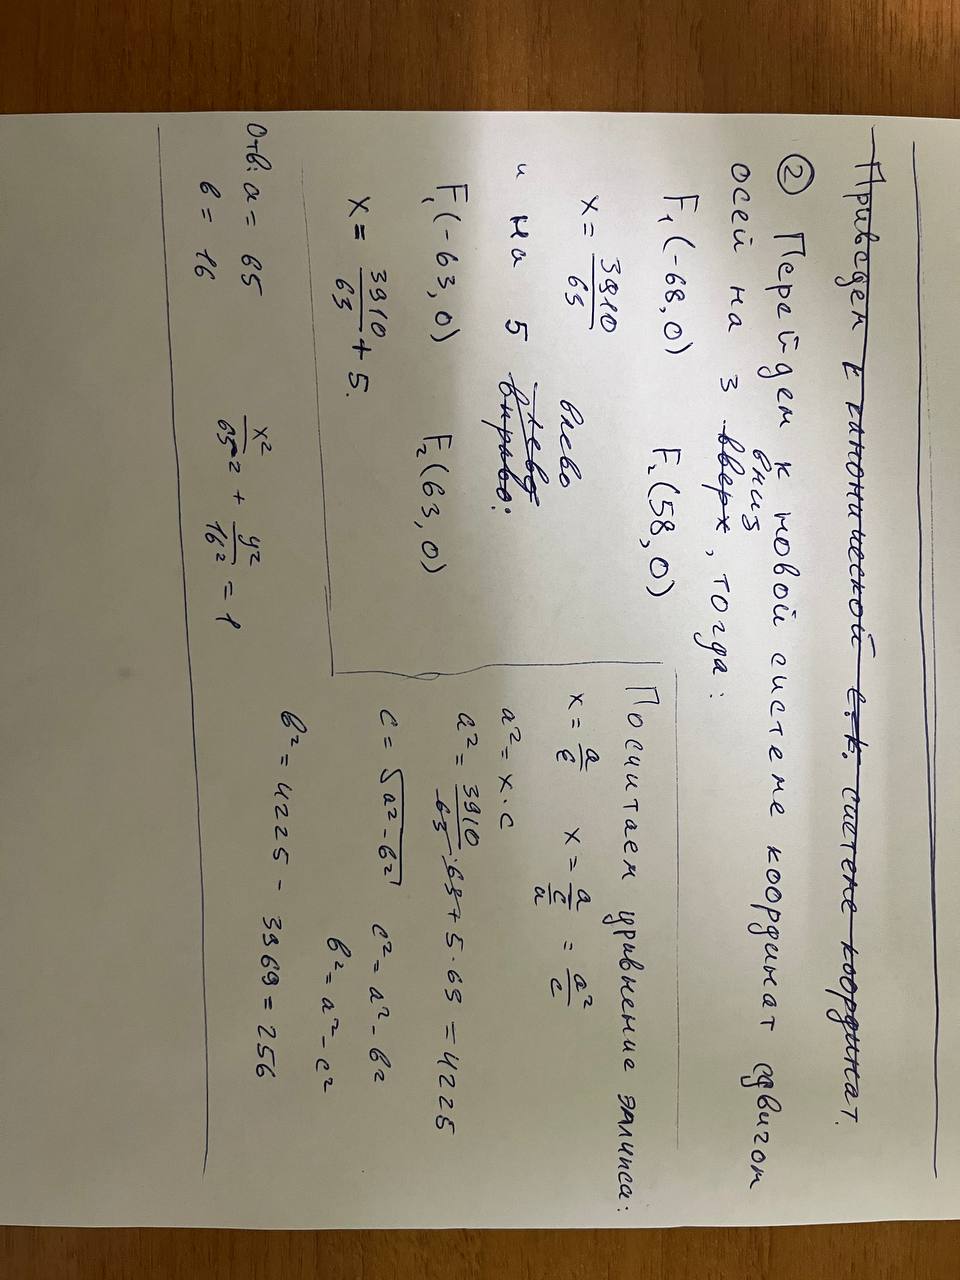 Приведем к канонической с.к. системе координат.
② Перейдем к новой системе координат сдвигом
осей на 3 вверх вниз, тогда:
F₁(-68,0) F₂(58,0)
x = 3910/63
и на 5 вправо влево влево:
F₁(-63,0) F₂(63,0)
x = 3910/63 + 5.
Посчитаем уравнение эллипса:
x = a/ε x = a/(c/a) = a²/c
a² = x·c
a² = 3910/63·63 + 5·63 = 4225
c = √(a²-b²) c² = a² - b²
b² = a² - c²
b² = 4225 - 3969 = 256
Отв: a = 65
b = 16
x²/65² + y²/16² = 1